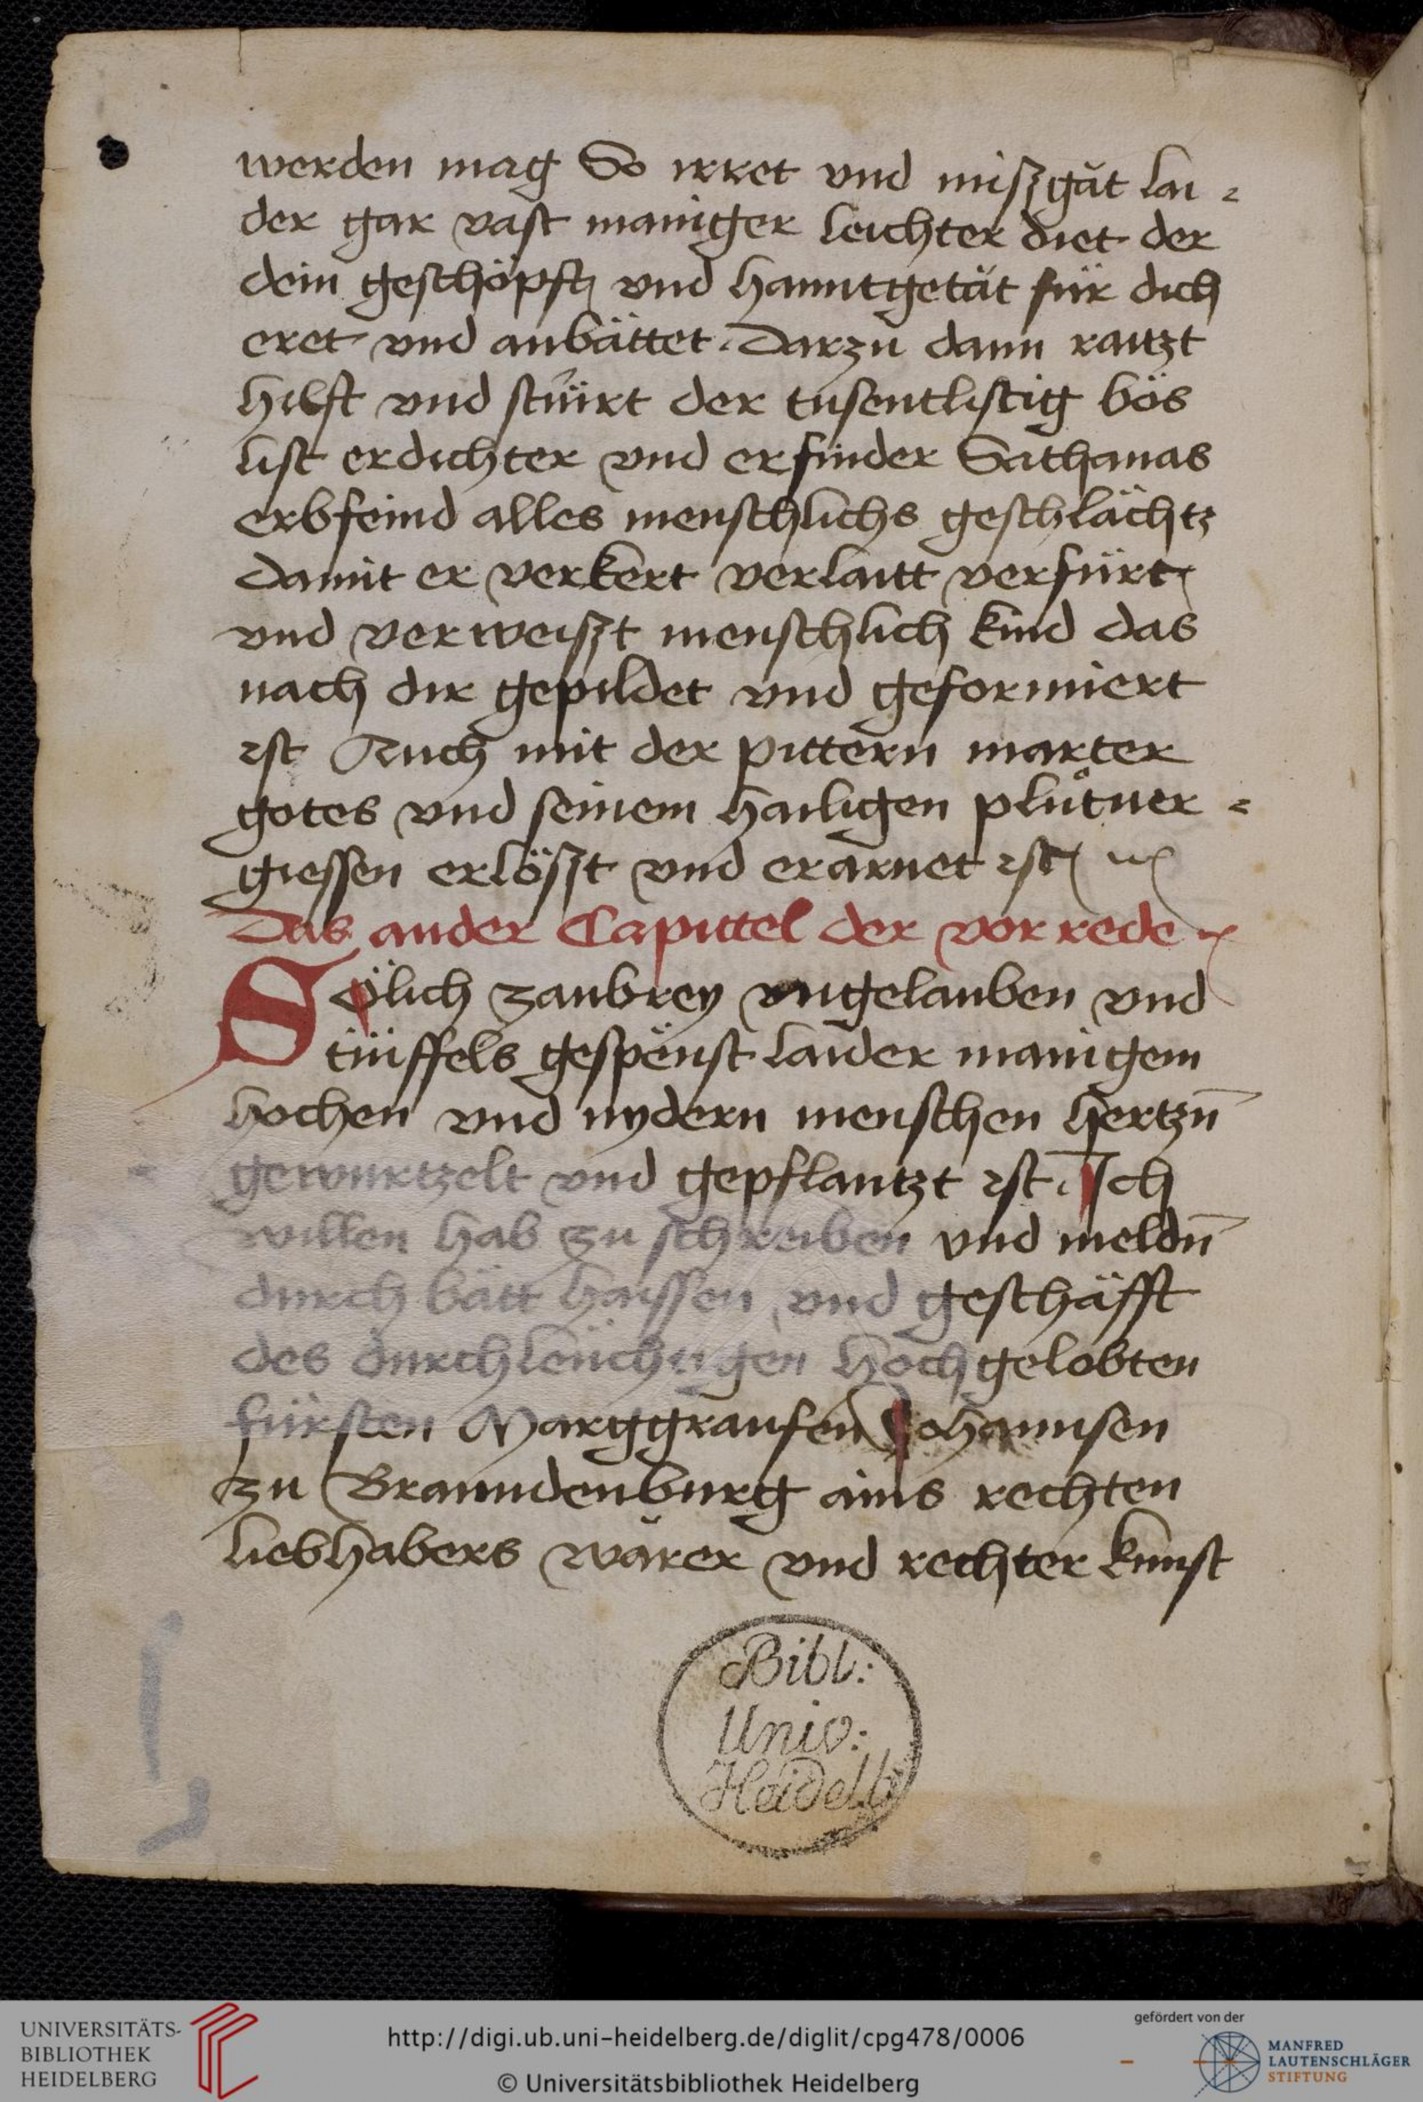 werden mag So irret vnd miszgăt lai =
der gar vast maniger leichter diet der
dein geschöpft vnd hanntgetăt für dich
eret vnd anbättet. Darzu dann raitzt
hilft vnd stüirt der tusentlistig bös
list erdichter vnd erfinder Sathanas
erbfeind alles menschlichs geschlächtz
damit er verkert verlaitt verfürt
vnd verweiszt menschlich kind das
nach dir gepildet vnd geformiert
ist Auch mit der pittern marter
gotes vnd seinem hailigen plůtuer =
giessen erlöszt vnd erarnet ist
Das ander Capittel der vor rede
Sölich zaubrey vngelauben vnd
tüffels gespënst laider manigem
hochen vnd nydern menschen hertzn̄
gewurtzelt vnd gepflantzt ist. Ich
willen hab zu schreiben vnd meldn̄
durch bätt haissen vnd geschäfft
des durchleüchtigen hochgelobten
fürsten Marggraufen Johannsen
zu Branndenburg ains rechten
liebhabers wărer vnd rechter kunst
Bibl:
Univ:
Heidelb:
UNIVERSITÄTS-
BIBLIOTHEK
HEIDELBERG
http://digi.ub.uni-heidelberg.de/diglit/cpg478/0006
© Universitätsbibliothek Heidelberg
gefördert von der
MANFRED
LAUTENSCHLÄGER
STIFTUNG